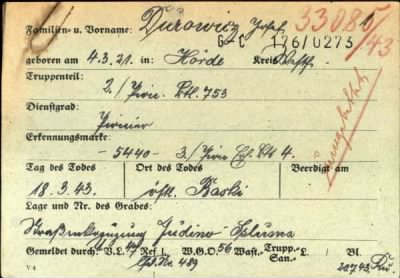 33085/43
Familien- u. Vorname: Durowicz Josef
G-C 176/0273
geboren am 4.3.21. in: Hörde Kreis Westf.
Truppenteil:
2./Pion. Btl. 753
Dienstgrad:
Pionier
Erkennungsmarke:
-5440- 3./Pion. Ers. Btl. 4.
Tag des Todes Ort des Todes Beerdigt am
18.3.43. östl. Baski
Lage und Nr. des Grabes:
Straßenkreuzung Judino-
Gemeldet durch: V.L. Ref. W.G.O. 56 Wast.-Trupp.- San.- L. Bl.
Lfd. Nr. 489
V 4